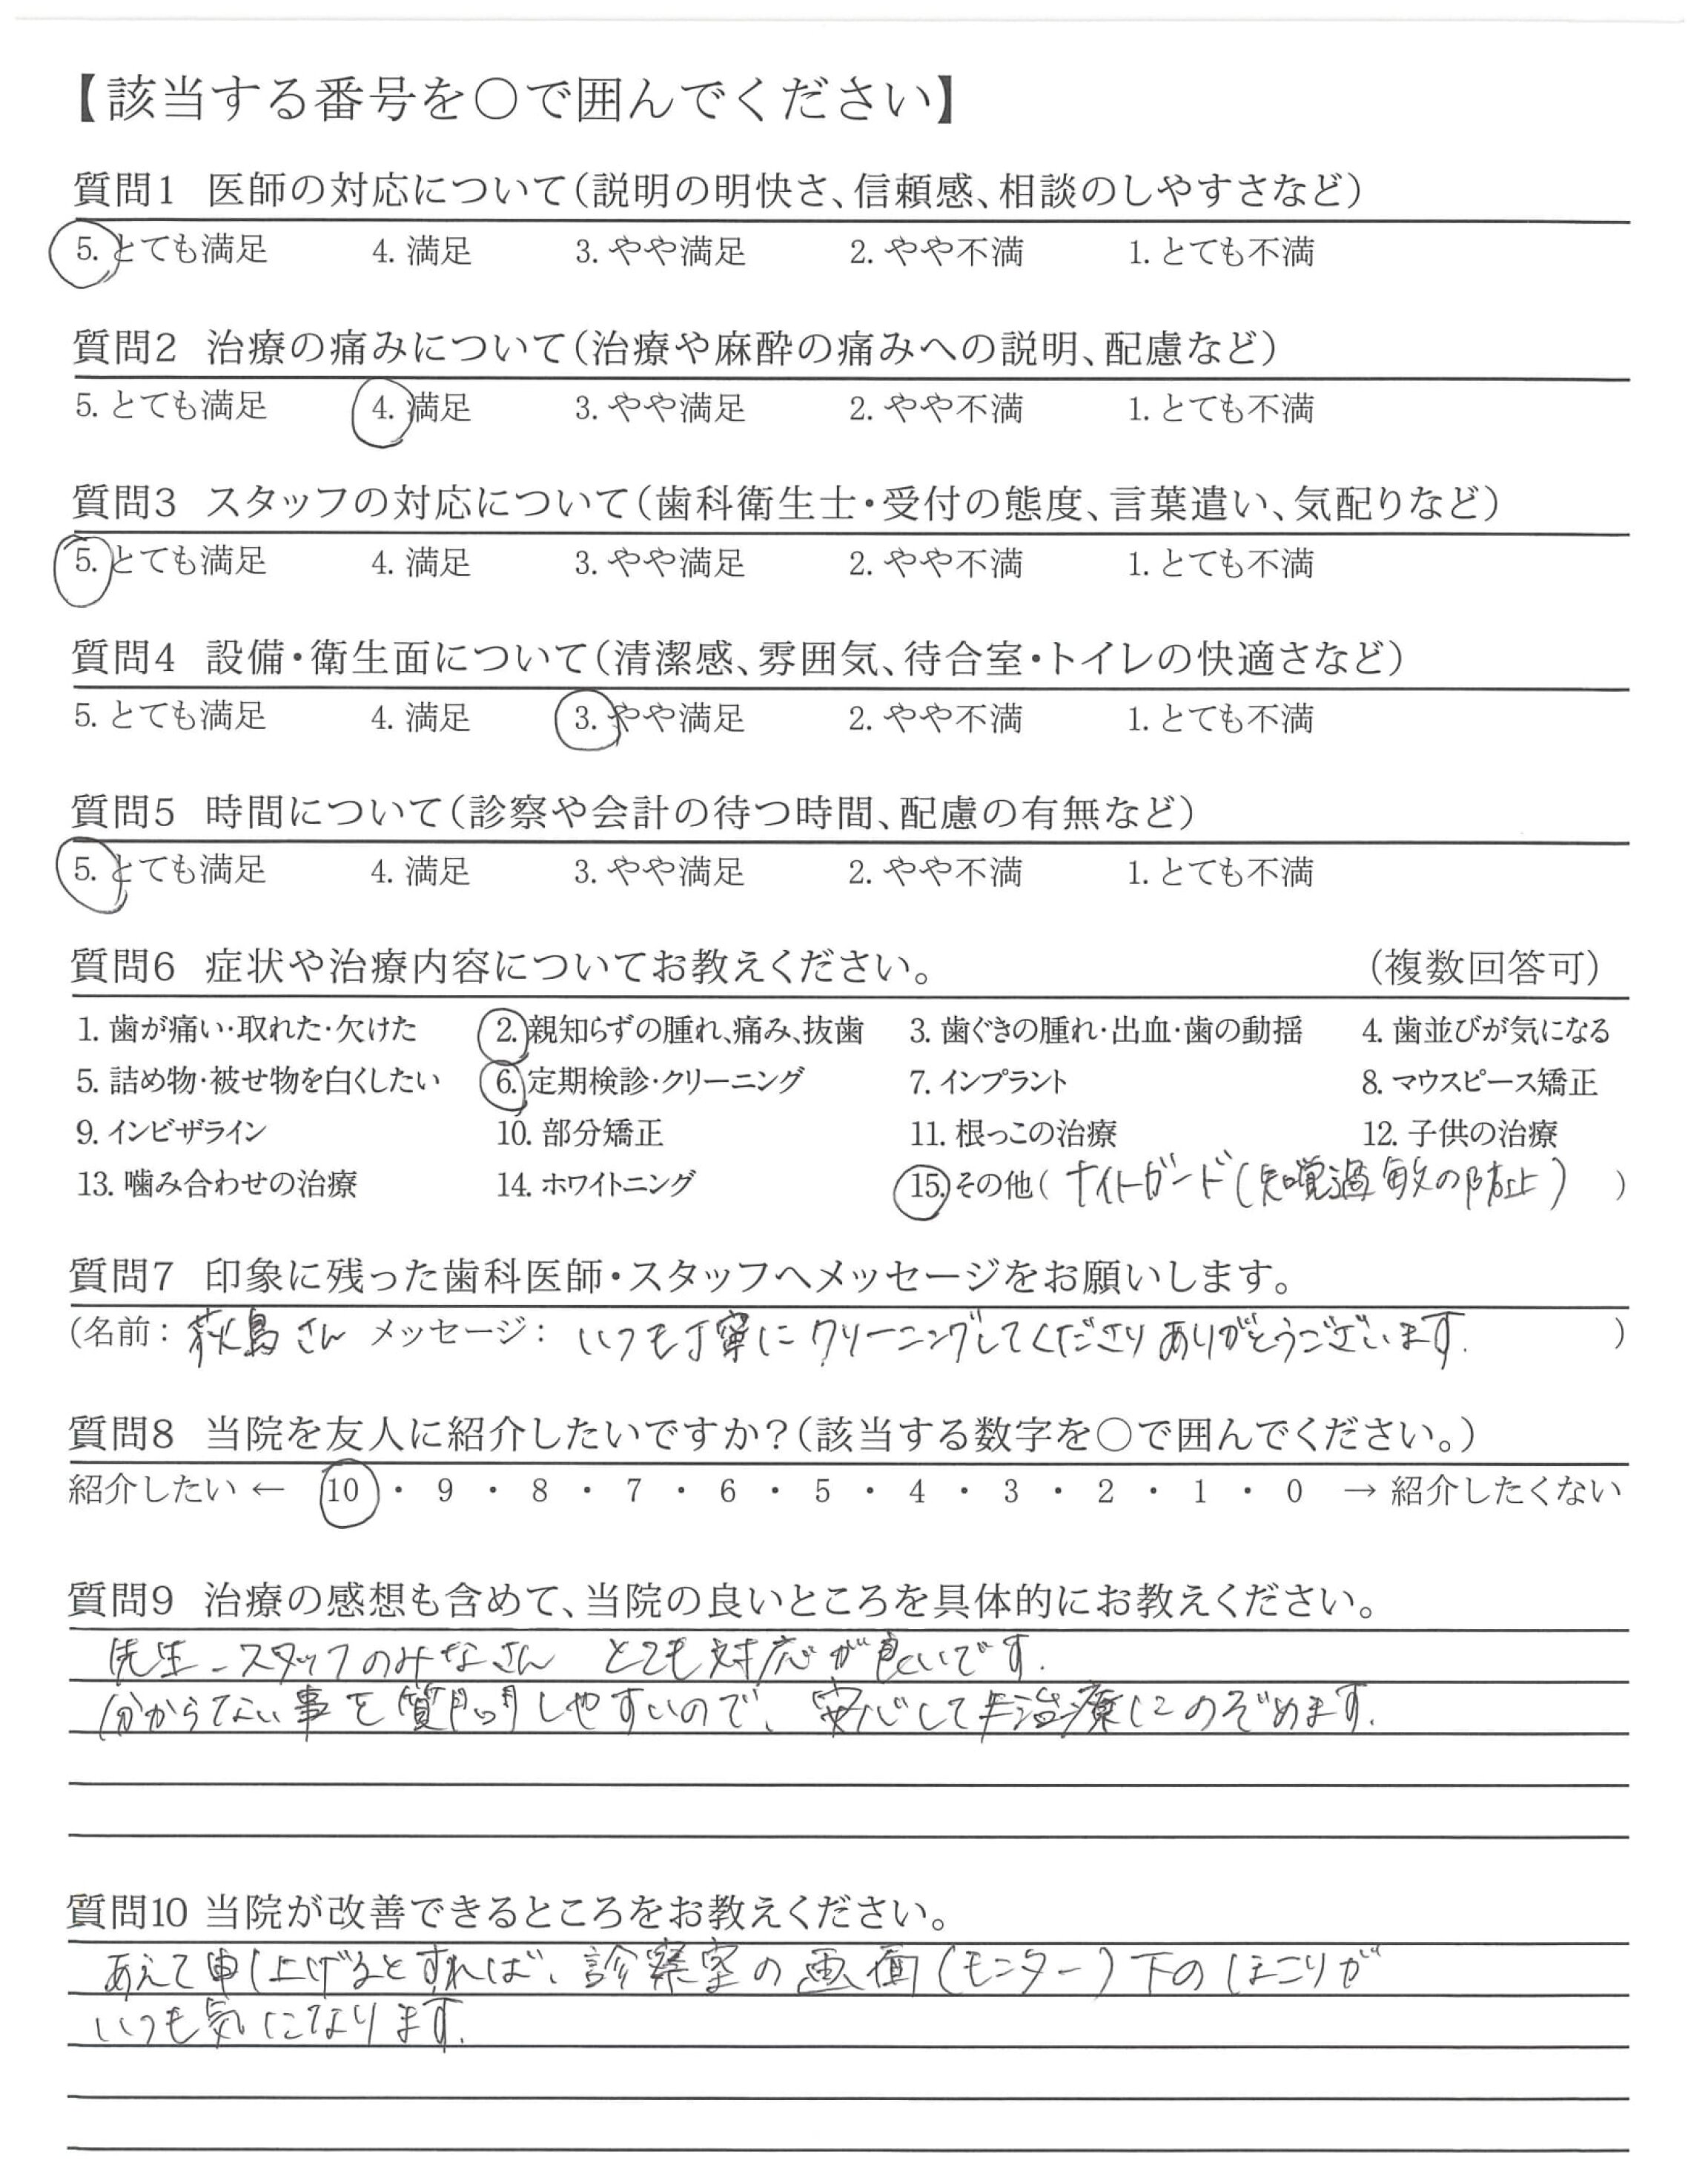 【該当する番号を○で囲んでください】
質問1 医師の対応について(説明の明快さ、信頼感、相談のしやすさなど)
5. とても満足 4. 満足 3. やや満足 2. やや不満 1. とても不満
質問2 治療の痛みについて(治療や麻酔の痛みへの説明、配慮など)
5. とても満足 4. 満足 3. やや満足 2. やや不満 1. とても不満
質問3 スタッフの対応について(歯科衛生士・受付の態度、言葉遣い、気配りなど)
5. とても満足 4. 満足 3. やや満足 2. やや不満 1. とても不満
質問4 設備・衛生面について(清潔感、雰囲気、待合室・トイレの快適さなど)
5. とても満足 4. 満足 3. やや満足 2. やや不満 1. とても不満
質問5 時間について(診察や会計の待つ時間、配慮の有無など)
5. とても満足 4. 満足 3. やや満足 2. やや不満 1. とても不満
質問6 症状や治療内容についてお教えください。 (複数回答可)
1. 歯が痛い・取れた・欠けた 2. 親知らずの腫れ、痛み、抜歯 3. 歯ぐきの腫れ・出血・歯の動揺 4. 歯並びが気になる
5. 詰め物・被せ物を白くしたい 6. 定期検診・クリーニング 7. インプラント 8. マウスピース矯正
9. インビザライン 10. 部分矯正 11. 根っこの治療 12. 子供の治療
13. 噛み合わせの治療 14. ホワイトニング 15. その他( ナイトガード(知覚過敏の防止) )
質問7 印象に残った歯科医師・スタッフへメッセージをお願いします。
(名前: 萩島さん メッセージ: いつも丁寧にクリーニングしてくださりありがとうございます. )
質問8 当院を友人に紹介したいですか?(該当する数字を○で囲んでください。)
紹介したい ← 10 ・ 9 ・ 8 ・ 7 ・ 6 ・ 5 ・ 4 ・ 3 ・ 2 ・ 1 ・ 0 → 紹介したくない
質問9 治療の感想も含めて、当院の良いところを具体的にお教えください。
先生、スタッフのみなさん とても対応が良いです.
分からない事を質問しやすいので、安心して治療にのぞめます.
質問10 当院が改善できるところをお教えください。
あえて申し上げるとすれば、診察室の画面(モニター)下のほこりが
いつも気になります.